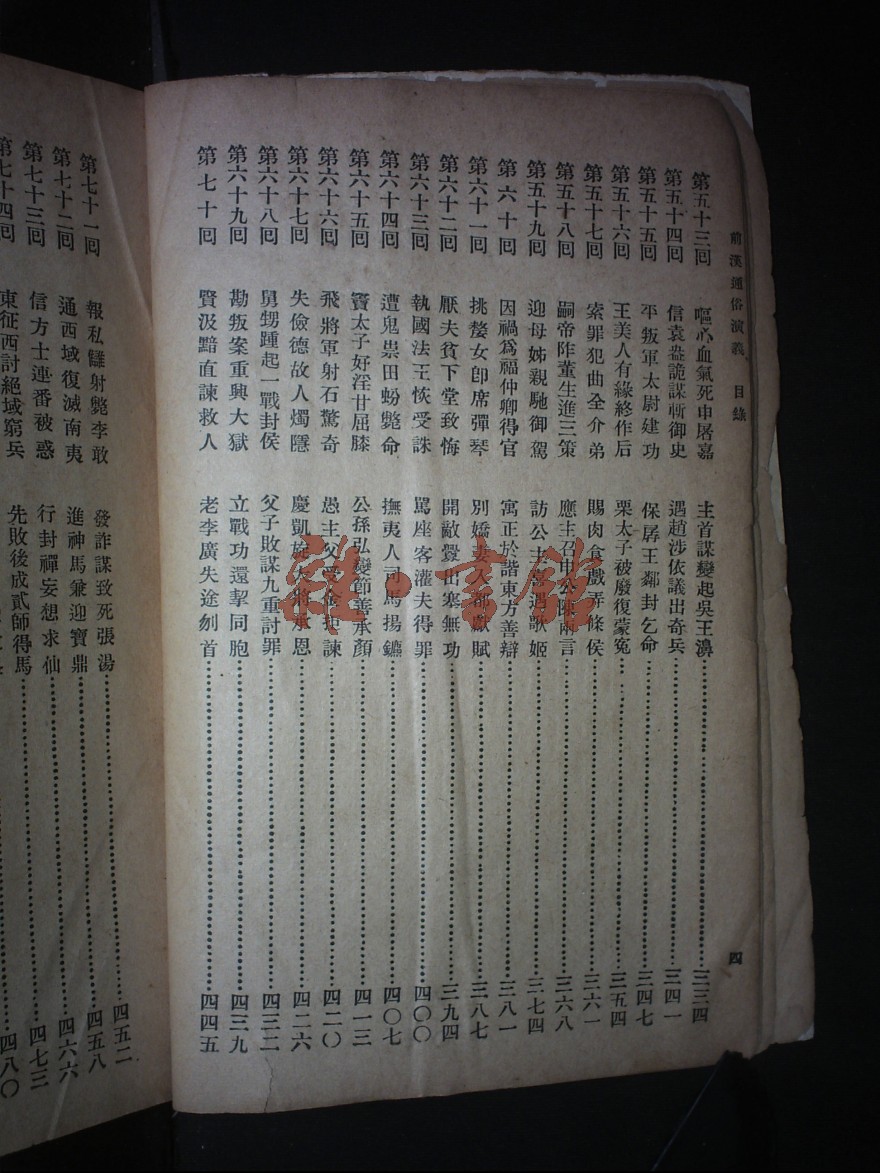 前漢通俗演義 目錄 四
第五十三回 嘔心血氣死申屠嘉 主首謀變起吳王濞 三三四
第五十四回 信袁盎詭謀斬御史 遇趙涉依議出奇兵 三四一
第五十五回 平叛軍太尉建功 保孱王鄰封乞命 三四七
第五十六回 王美人有緣終作后 栗太子被廢復蒙冤 三五四
第五十七回 索罪犯曲全介弟 賜肉食戲弄條侯 三六一
第五十八回 嗣帝阼董生進三策 應主召申公陳兩言 三六八
第五十九回 迎母姊親馳御駕 訪公主喜遇歌姬 三七四
第六十回 因禍爲福仲卿得官 寓正於諧東方善辯 三八一
第六十一回 挑嫠女卽席彈琴 別嬌妻入都獻賦 三八七
第六十二回 厭夫貧下堂致悔 開敵釁出塞無功 三九四
第六十三回 執國法王恢受誅 罵座客灌夫得罪 四〇〇
第六十四回 遭鬼祟田蚡斃命 撫夷人司馬揚鑣 四〇七
第六十五回 竇太子好淫甘屈膝 公孫弘變節善承顏 四一三
第六十六回 飛將軍射石驚奇 愚主父受金拒諫 四二〇
第六十七回 失儉德故人燭隱 慶凱旋大將承恩 四二六
第六十八回 舅甥踵起一戰封侯 父子敗謀九重討罪 四三二
第六十九回 勘叛案重興大獄 立戰功還挈同胞 四三九
第七十回 賢汲黯直諫救人 老李廣失途刎首 四四五
第七十一回 報私讎射斃李敢 發詐謀致死張湯 四五二
第七十二回 通西域復滅南夷 進神馬兼迎寶鼎 四五八
第七十三回 信方士連番被惑 行封禪妄想求仙 四六六
第七十四回 東征西討絕域窮兵 先敗後成貳師得馬 四七三
四八〇
雜·書館